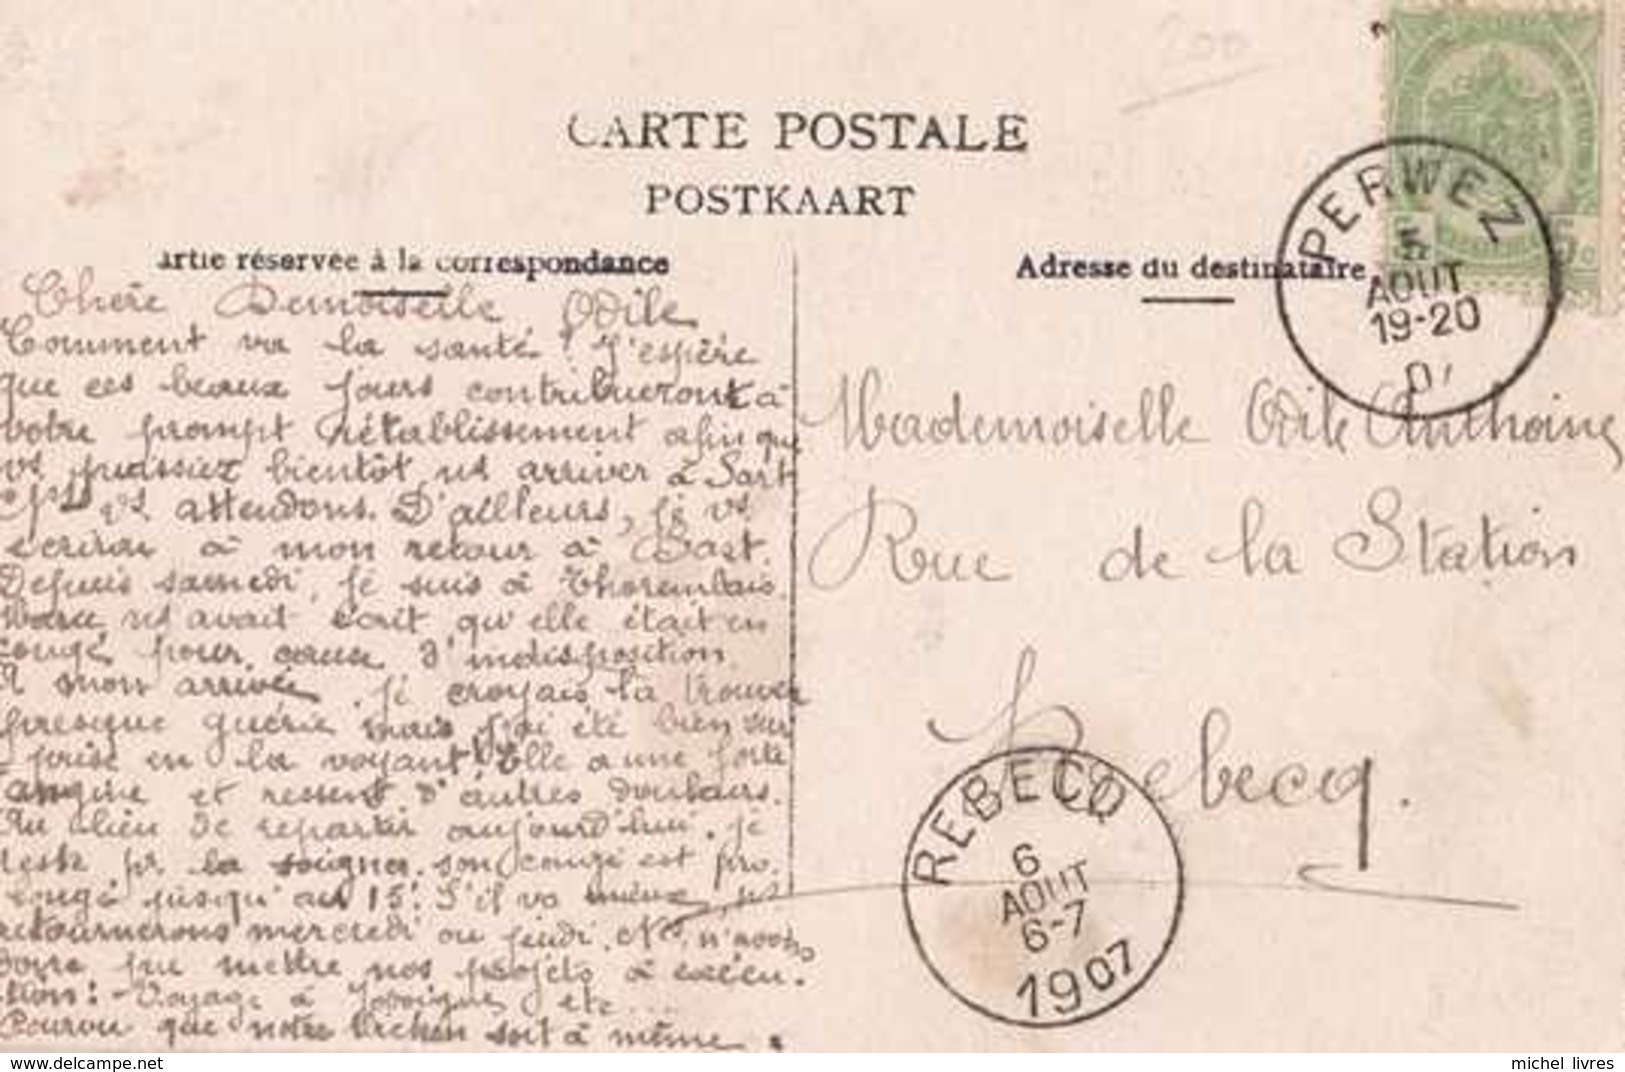 200
CARTE POSTALE
POSTKAART
artie réservée à la correspondance
Adresse du destinataire
PERWEZ
5
AOUT
19-20
07
5 c
Chère Demoiselle Odile
Comment va la santé ? J'espère
que ces beaux jours contribueront à
votre prompt rétablissement afin que
vs puissiez bientôt ns arriver à Sart
Ns vs attendons. D'ailleurs, je vs
écrirai à mon retour à Sart.
Depuis samedi, je suis à Thorembais
ns avait écrit qu'elle était en
congé pour cause d'indisposition.
A mon arrivée, je croyais la trouver
presque guérie mais j'ai été bien sur
prise en la voyant! Elle a une forte
angine et ressent d'autres douleurs.
Au lieu de repartir aujourd'hui, je
reste pr la soigner. son congé est pro.
longé jusqu'au 15. S'il va mieux, ns
retournerons mercredi ou jeudi. Ns n'avons
donc pu mettre nos projets à exécu.
tion: - Voyage à etc ...
Pourvu que notre soit à même
Mademoiselle Odile Anthoine
Rue de la Station
Rebecq.
REBECQ
6
AOUT
6-7
1907
delcampe.net
michel_livres